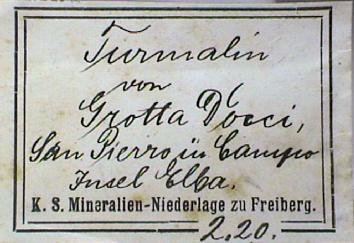 Turmalin
von
Grotta Docci,
San Pierro in Campo
Insel Elba.
K. S. Mineralien-Niederlage zu Freiberg.
2.20.